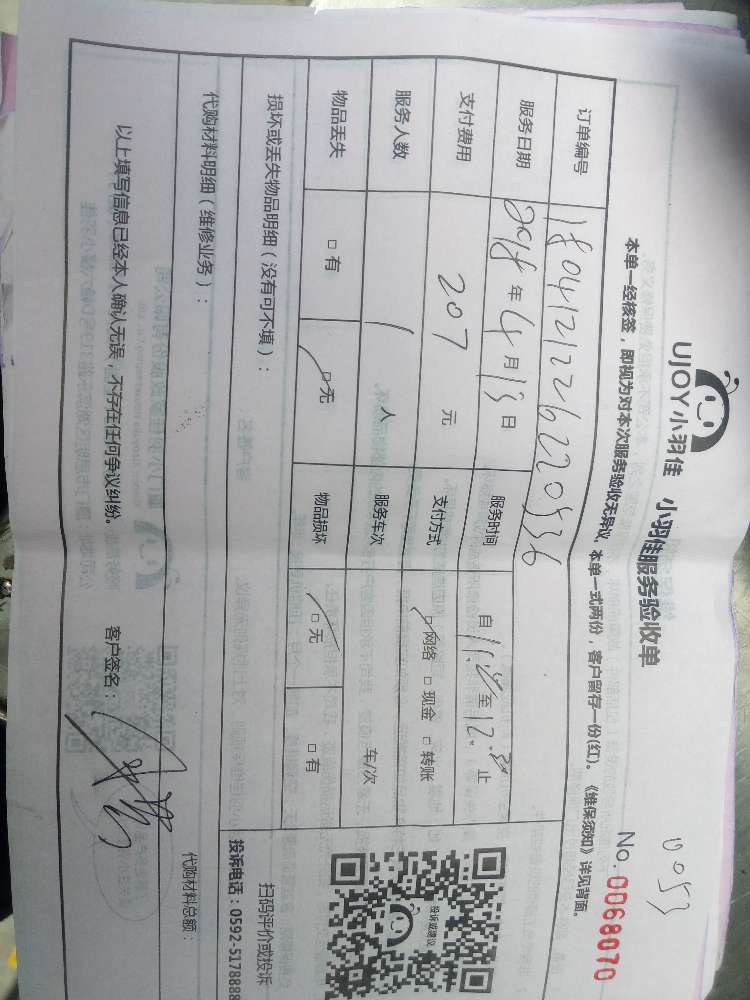 0053
UJOY小羽佳 小羽佳服务验收单
No. 0068070
本单一经核签，即视为对本次服务验收无异议，本单一式两份，客户留存一份(红)。《维保须知》详见背面。
订单编号 1804121226220536
服务日期 2018年4月13日 服务时间 自 至12:30止
支付费用 207 元 支付方式 网络 □ 现金 □ 转账
服务人数 1 人 服务车次 车/次
物品丢失 □ 有 □ 无 物品损坏 □ 无 □ 有
损坏或丢失物品明细（没有可不填）：
代购材料明细（维修业务）：
代购材料总额：
以上填写信息已经本人确认无误，不存在任何争议纠纷。 客户签名：
投诉或建议
扫码评价或投诉
投诉电话：0592-5178888